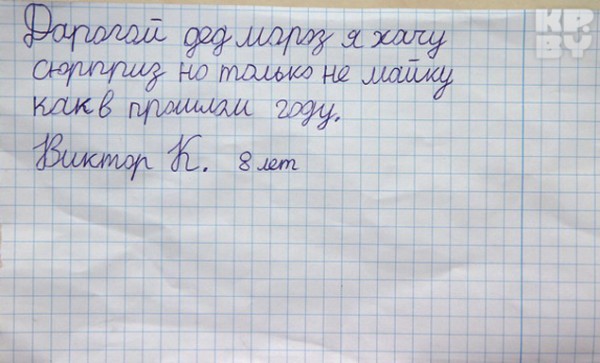 KP.
BY
Дарогой дед мароз я хачу
сюрприз но только не майку
как в прошлом году.
Виктор К. 8 лет